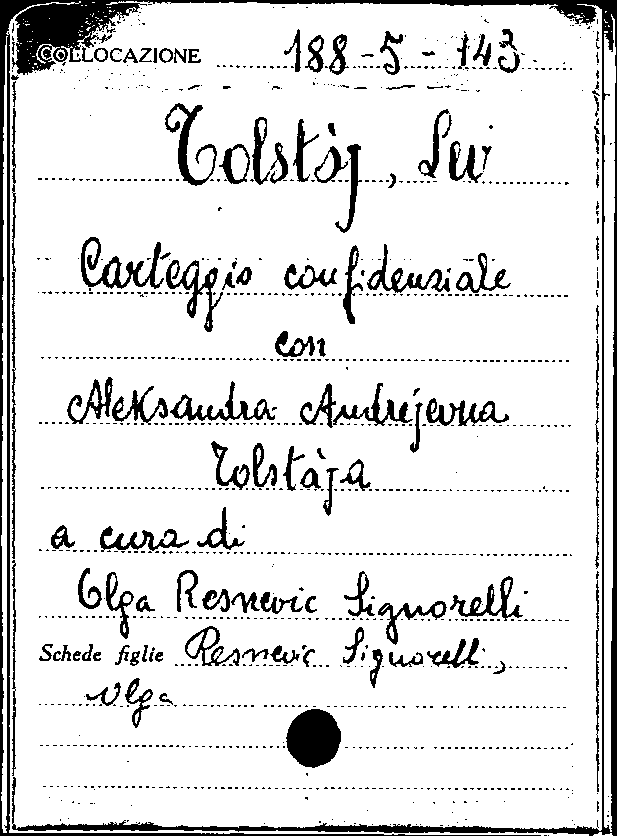 COLLOCAZIONE 188-5-143
Tolstòj, Lev
Carteggio confidenziale
con
Aleksandra Andréjevna
Tolstàja
a cura di
Olga Resnevic Signorelli
Schede figlie Resnevic Signorelli,
Olga